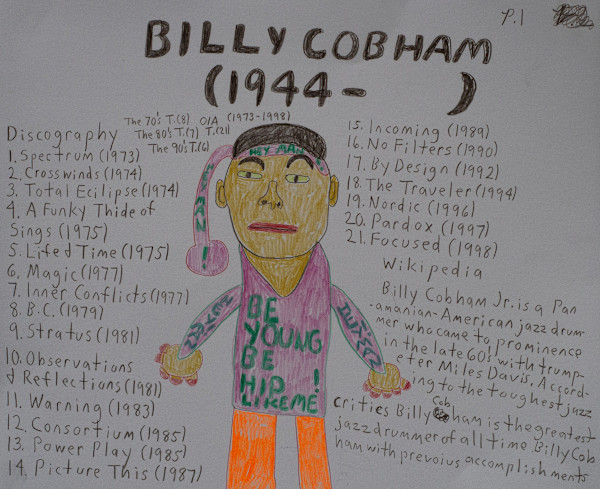 P.1
BILLY COBHAM
(1944- )
The 70's T.(8) OIA (1973-1998)
The 80's T.(7) T.(21)
The 90's T.(6)
Discography
1. Spectrum (1973)
2. Crosswinds (1974)
3. Total Ecilipse (1974)
4. A Funky Thide of
Sings (1975)
5. Life & Time (1975)
6. Magic (1977)
7. Inner Conflicts (1977)
8. B.C. (1979)
9. Stratus (1981)
10. Observations
& Reflections (1981)
11. Warning (1983)
12. Consortium (1985)
13. Power Play (1985)
14. Picture This (1987)
HEY MAN
MAN !
BE
YOUNG
BE
HIP !
LIKE ME
15. Incoming (1989)
16. No Filters (1990)
17. By Design (1992)
18. The Traveler (1994)
19. Nordic (1996)
20. Pardox (1997)
21. Focused (1998)
Wikipedia
Billy Cobham Jr. is a Pan
amanian-American jazz drum-
mer who came to prominence
in the late 60's with trump-
eter Miles Davis. Accord-
ing to the toughest jazz
crities Billy Cob ham is the greatest
jazz drummer of all time. Billy Cob
ham with prevoius accomplishments